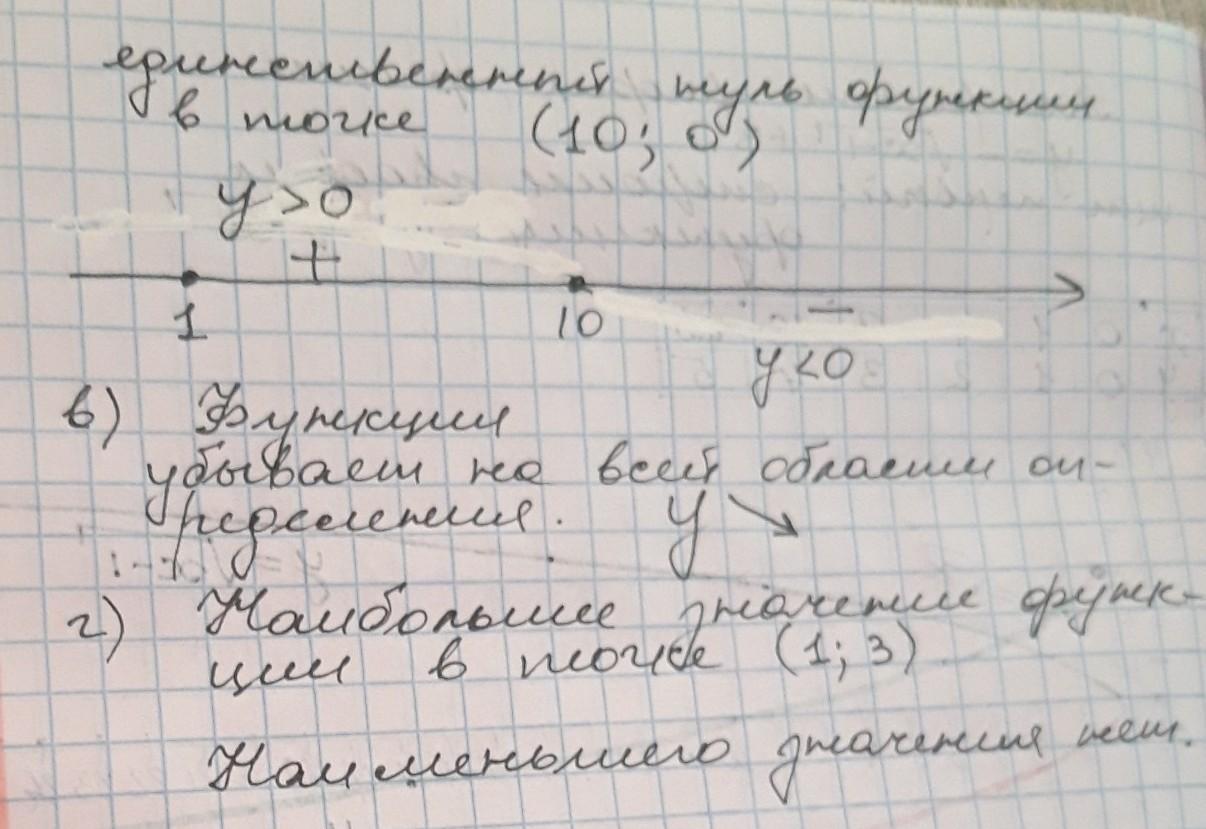 единственный нуль функции
в точке (10; 0)
y > 0
+
1
10
−
y < 0
в) Функция
убывает на всей области оп-
ределения. y ↘
г) Наибольшее значение функ-
ции в точке (1; 3)
Наименьшего значения нет.